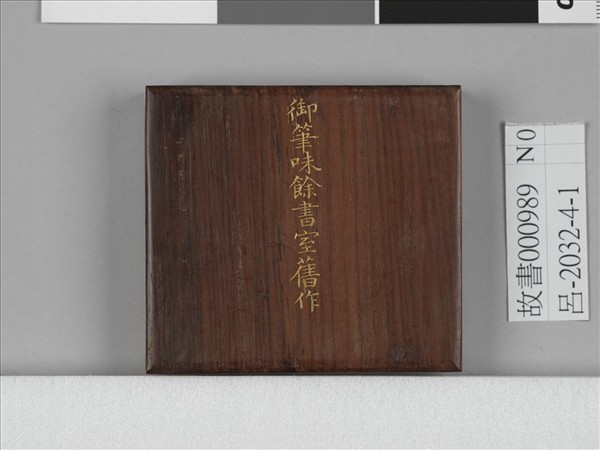 御筆味餘書室舊作
故書000989 N0
呂-2032-4-1